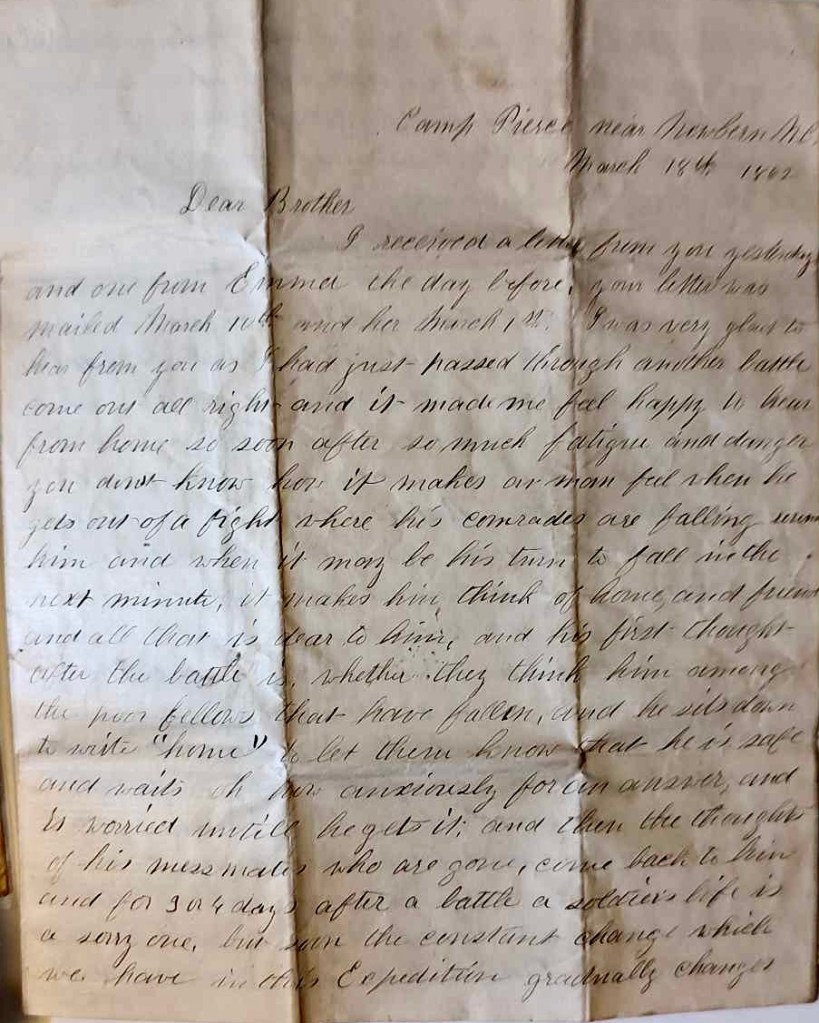 Camp Pierce near Newbern N.C.
March 18th 1862
Dear Brother
I received a letter from you yesterday
and one from Emma the day before, your letter was
mailed March 10th and her March 1st. I was very glad to
hear from you as I had just passed through another battle
come out all right and it made me feel happy to hear
from home so soon after so much fatigue and danger
you dont know how it makes a man feel when he
gets out of a fight where his comrades are falling
him and when it may be his turn to fall in the
next minute, it makes him think of home, and friends
and all that is dear to him, and his first thought
after the battle is, whether they think him among
the poor fellows that have fallen, and he sits down
to write "home" to let them know that he is safe
and waits oh how anxiously for an answer, and
is worried untill he gets it; and then the thoughts
of his messmates who are gone, come back to him
and for 3 or 4 days after a battle a soldiers life is
a sorry one, but soon the constant change which
we have in this Expedition gradually changes